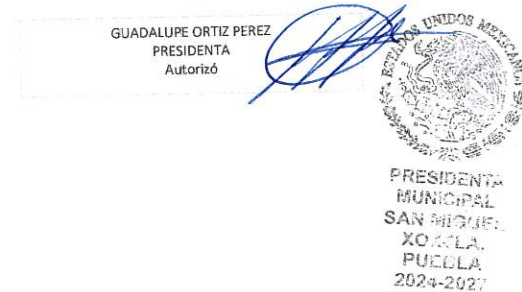 GUADALUPE ORTIZ PEREZ
PRESIDENTA
Autorizó
ESTADOS UNIDOS MEXICANOS
PRESIDENTA
MUNICIPAL
SAN MIGUEL
XOXTLA,
PUEBLA
2024-2027